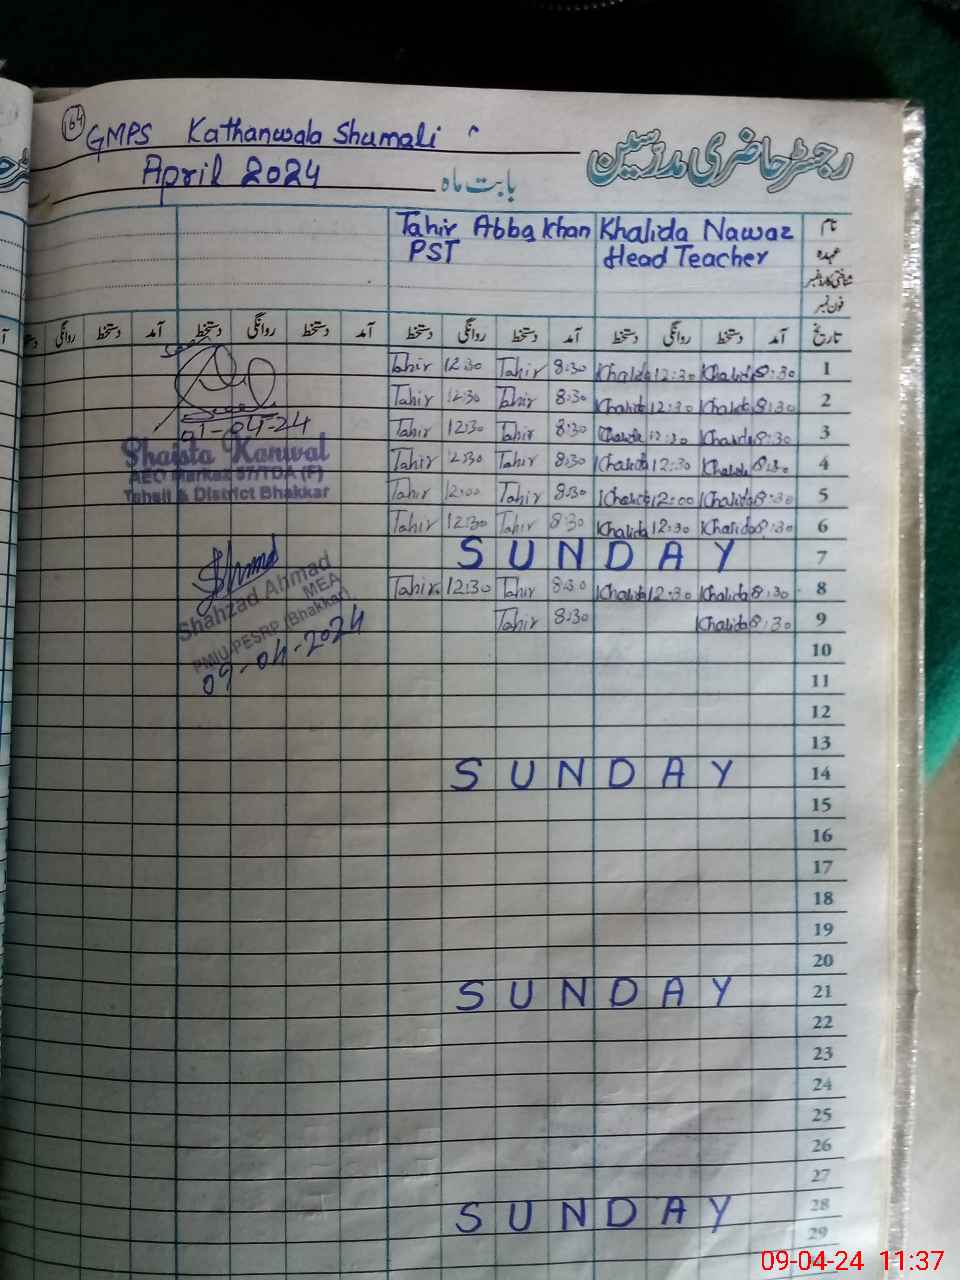 164
GMPS Kathanwala Shumali
رجسٹر حاضری مدرسین
April 2024 بابت ماہ
نام Khalida Nawaz Tahir Abba Khan
عہدہ Head Teacher PST
شناختی کارڈ نمبر
فون نمبر
تاریخ آمد دستخط روانگی دستخط آمد دستخط روانگی دستخط آمد دستخط روانگی دستخط آمد دستخط روانگی
Tahir 12:30 Tahir 8:30 Khalida 12:30 Khalida 8:30 1
Tahir 12:30 Tahir 8:30 Khalida 12:30 Khalida 8:30 2
Tahir 12:30 Tahir 8:30 Khalida 12:30 Khalida 8:30 3
Tahir 12:30 Tahir 8:30 Khalida 12:30 Khalida 8:30 4
Tahir 12:00 Tahir 8:30 Khalida 12:00 Khalida 8:30 5
Tahir 12:30 Tahir 8:30 Khalida 12:30 Khalida 8:30 6
SUNDAY 7
Tahir 12:30 Tahir 8:30 Khalida 12:30 Khalida 8:30 8
Tahir 8:30 Khalida 8:30 9
10
11
12
13
SUNDAY 14
15
16
17
18
19
20
SUNDAY 21
22
23
24
25
26
27
SUNDAY 28
29
01-04-24
Shaista Kanwal
AEO Markaz 57/TDA (F)
Tehsil & District Bhakkar
Shahzad Ahmad
MEA
PMIU-PESRP (Bhakkar)
09-04-2024
09-04-24 11:37